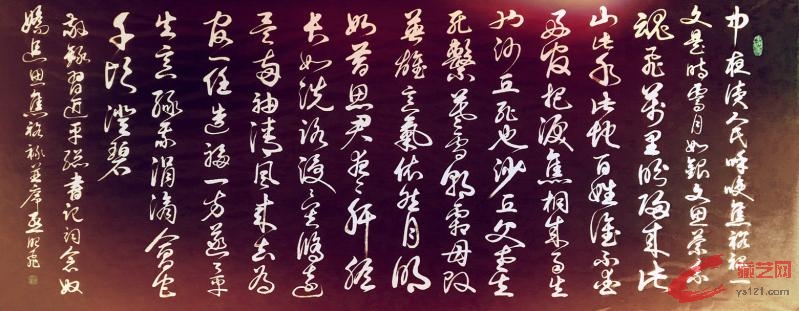 中夜读人民呼唤焦裕禄一
文是时霁月如银文思萦系
魂飞万里盼归来此
山此水此地百姓谁不爱
好官把泪焦桐成雨生
也沙丘死也沙丘父老生
死繫暮雪朝霜毋改
英雄意氣依然月明
如昔思君夜夜肝胆
长如洗路漫漫其修远
矣两袖清风来去为
官一任造福一方遂了平
生意绿我涓滴会它
千顷澄碧
敬録習近平总書记词念奴
嬌追思焦裕禄
藏艺网
ys121.com